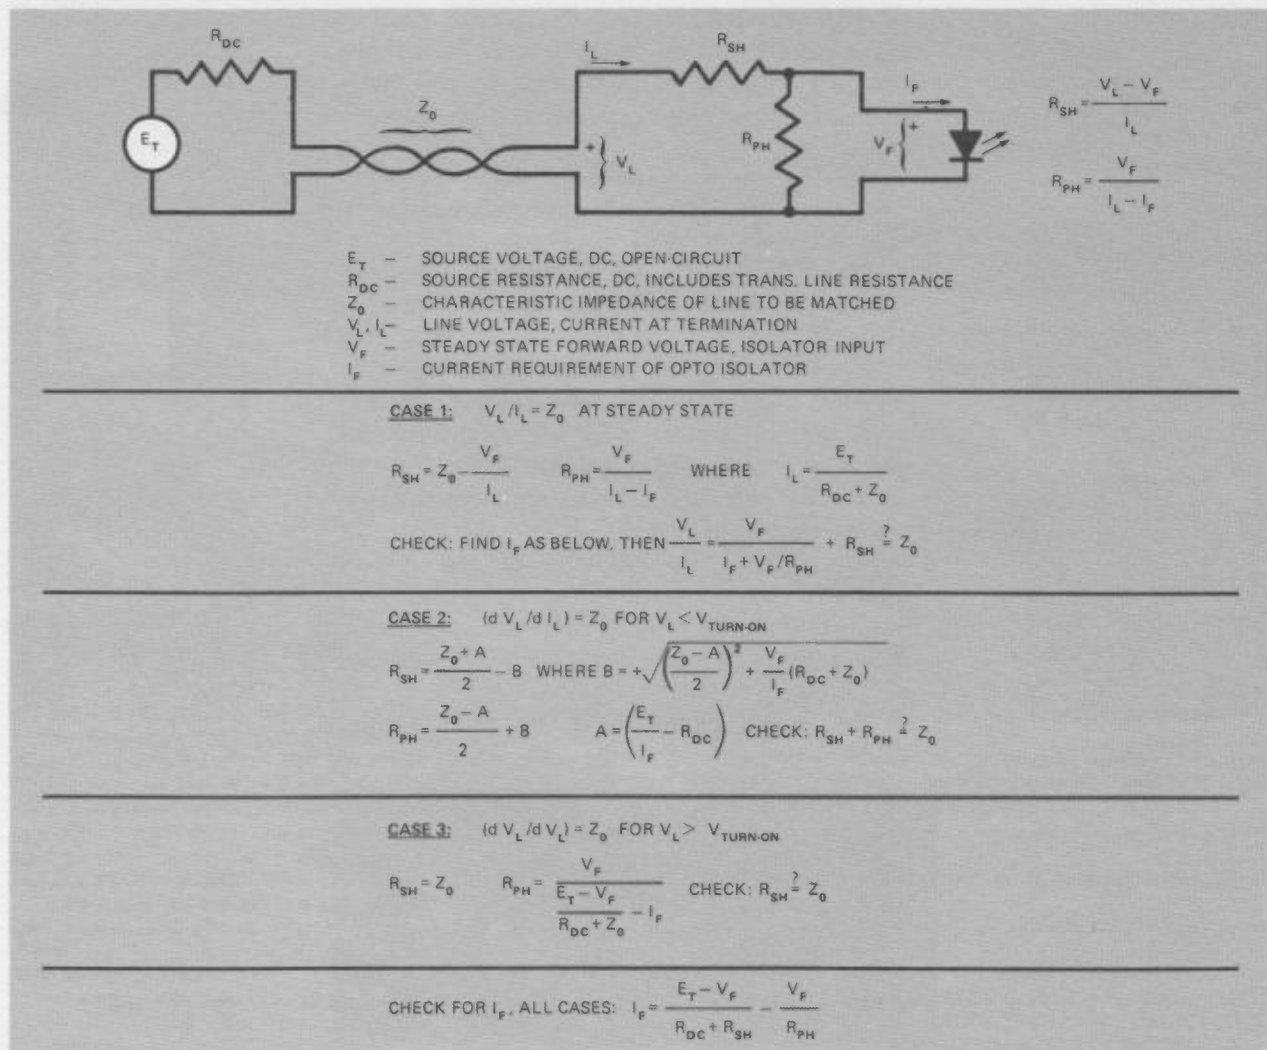 R_DC
E_T
Z_0
I_L
+
V_L
R_SH
R_PH
I_F
V_F
+
R_SH = (V_L – V_F) / I_L
R_PH = V_F / (I_L – I_F)
E_T – SOURCE VOLTAGE, DC, OPEN-CIRCUIT
R_DC – SOURCE RESISTANCE, DC, INCLUDES TRANS. LINE RESISTANCE
Z_0 – CHARACTERISTIC IMPEDANCE OF LINE TO BE MATCHED
V_L, I_L – LINE VOLTAGE, CURRENT AT TERMINATION
V_F – STEADY STATE FORWARD VOLTAGE, ISOLATOR INPUT
I_F – CURRENT REQUIREMENT OF OPTO ISOLATOR
CASE 1: V_L/I_L = Z_0 AT STEADY STATE
R_SH = Z_0 – V_F / I_L R_PH = V_F / (I_L – I_F) WHERE I_L = E_T / (R_DC + Z_0)
CHECK: FIND I_F AS BELOW, THEN V_L / I_L = V_F / (I_F + V_F/R_PH) + R_SH ?= Z_0
CASE 2: (d V_L/d I_L) = Z_0 FOR V_L < V_TURN-ON
R_SH = (Z_0 + A) / 2 – B WHERE B = +√(((Z_0 – A) / 2)² + V_F / I_F (R_DC + Z_0))
R_PH = (Z_0 – A) / 2 + B A = (E_T / I_F – R_DC) CHECK: R_SH + R_PH ?= Z_0
CASE 3: (d V_L/d V_L) = Z_0 FOR V_L > V_TURN-ON
R_SH = Z_0 R_PH = V_F / ((E_T – V_F) / (R_DC + Z_0) – I_F) CHECK: R_SH ?= Z_0
CHECK FOR I_F, ALL CASES: I_F = (E_T – V_F) / (R_DC + R_SH) – V_F / R_PH